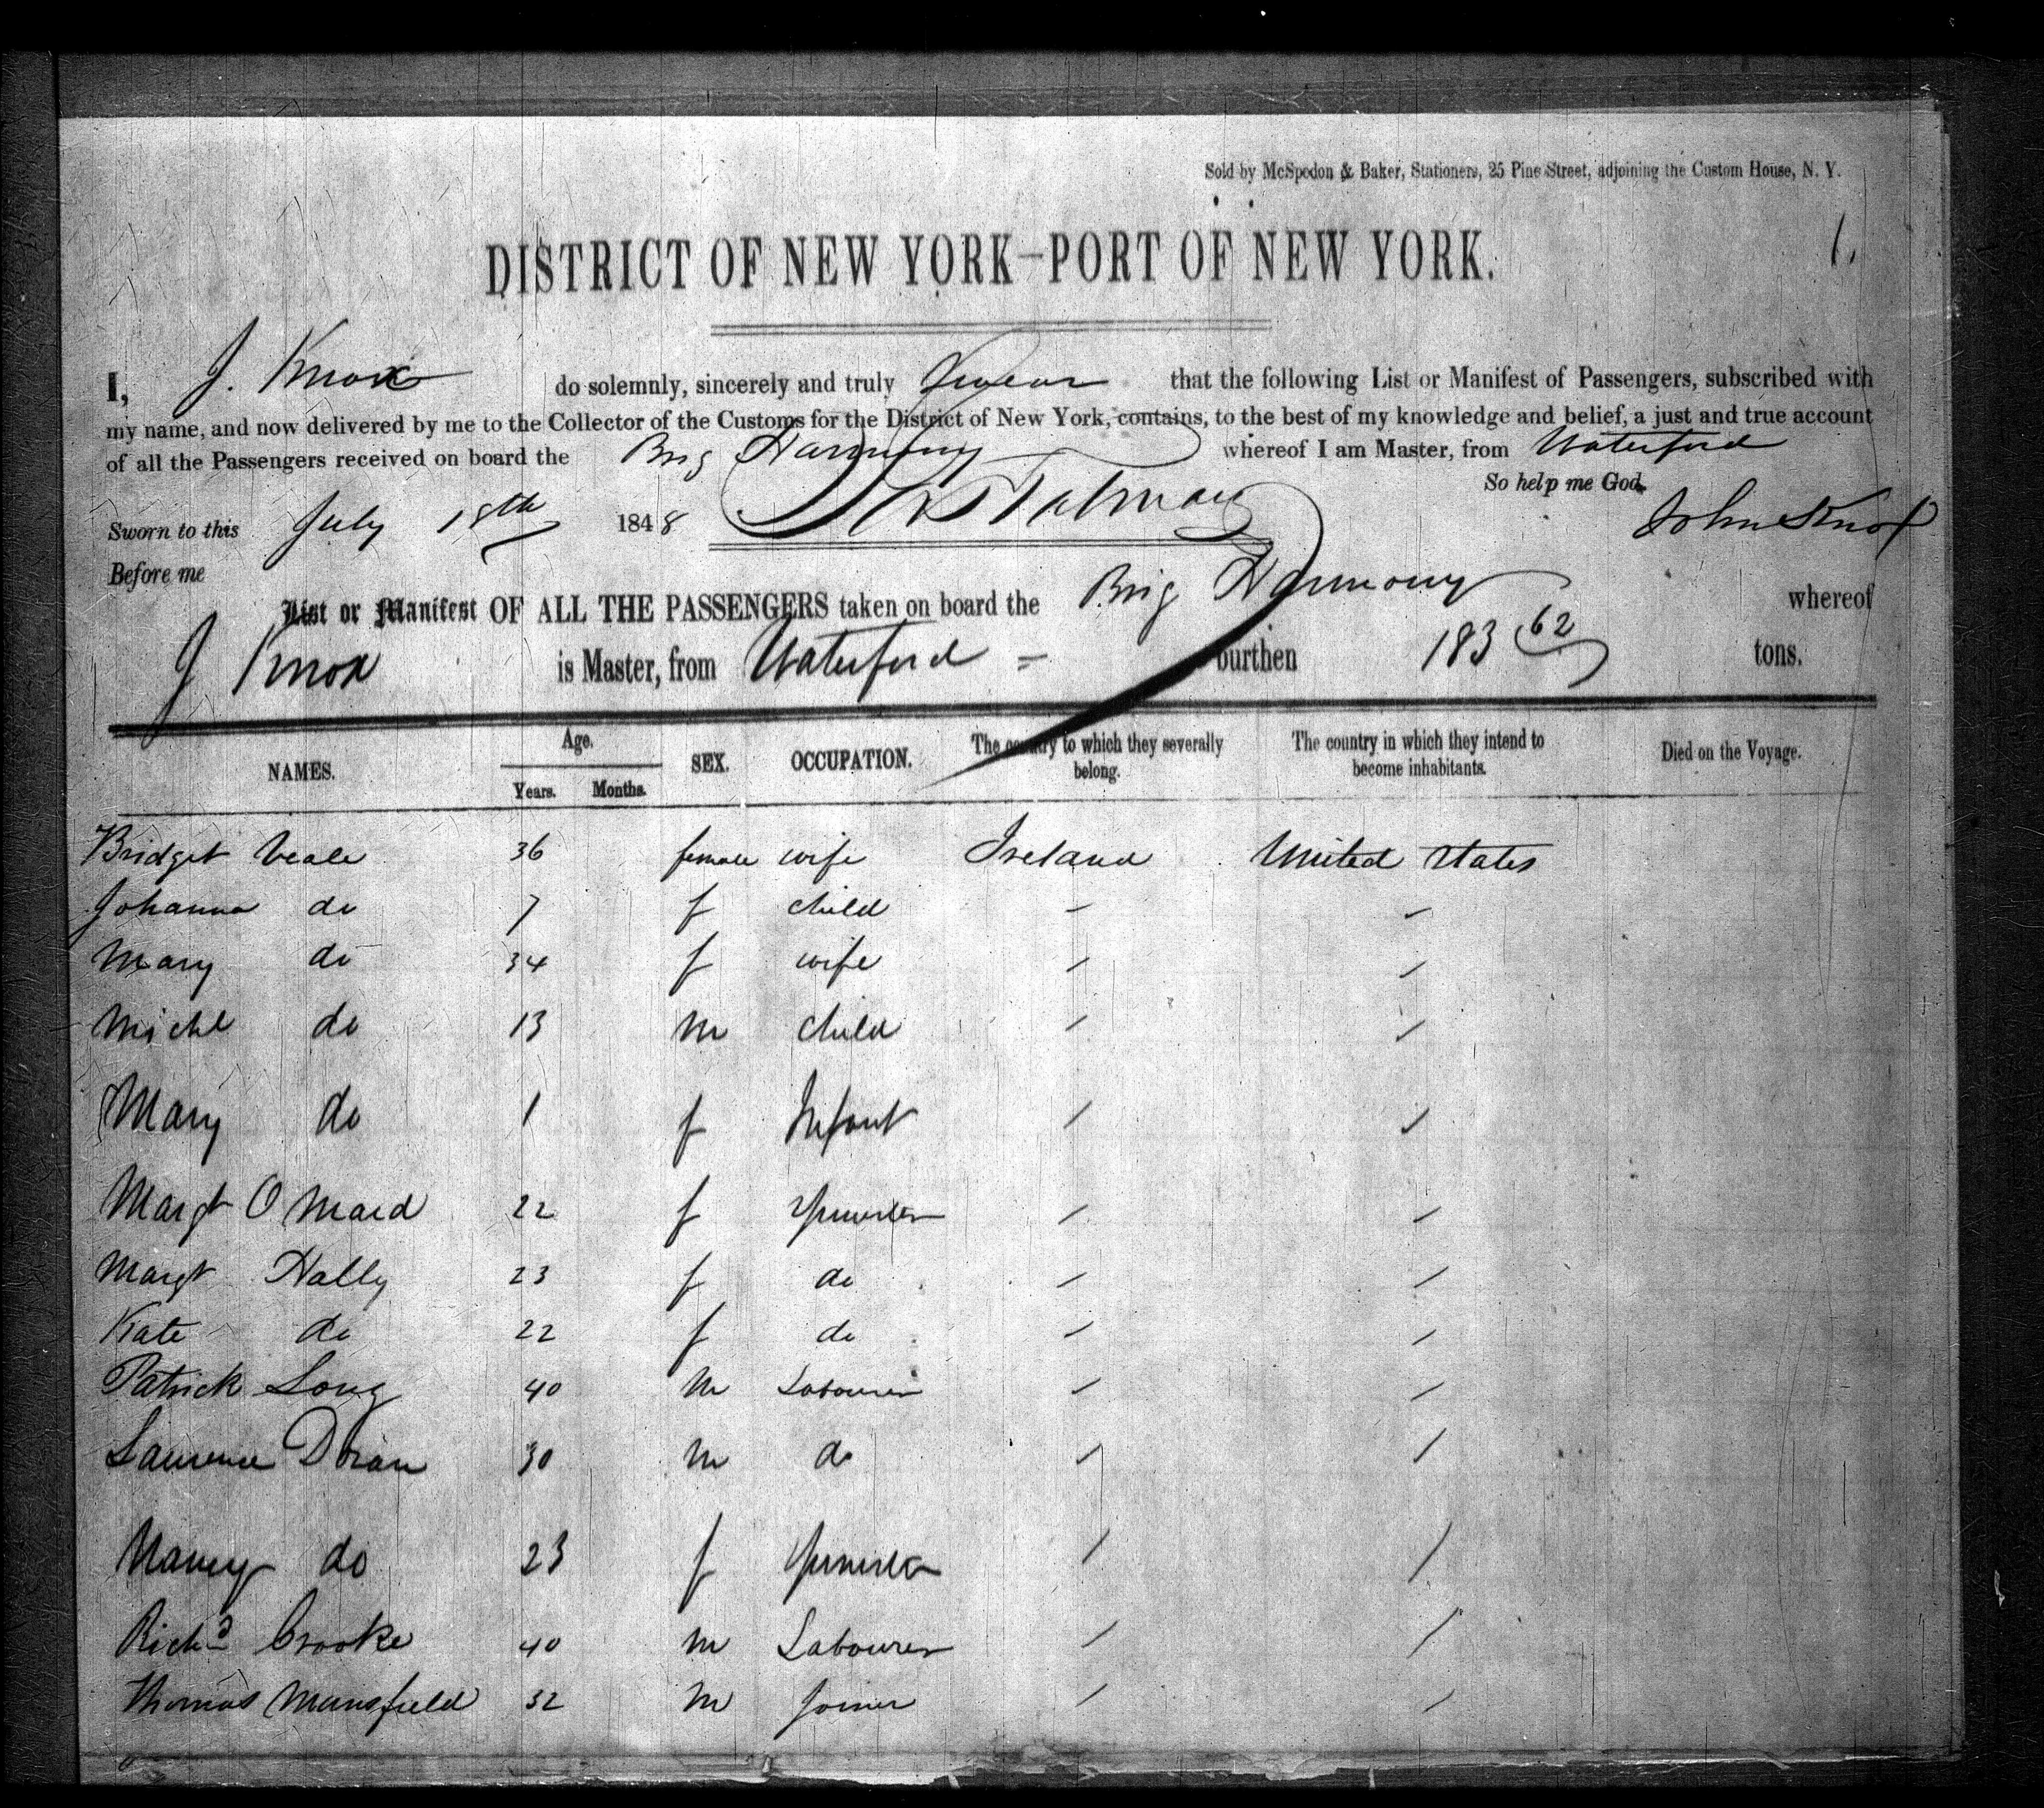 Sold by McSpedon & Baker, Stationers, 25 Pine Street, adjoining the Custom House, N. Y.
1.
DISTRICT OF NEW YORK—PORT OF NEW YORK.
I, J. Knox do solemnly, sincerely and truly swear that the following List or Manifest of Passengers, subscribed with
my name, and now delivered by me to the Collector of the Customs for the District of New York, contains, to the best of my knowledge and belief, a just and true account
of all the Passengers received on board the Brig Harmony whereof I am Master, from Waterford
So help me God.
Sworn to this July 18th 1848 John Knox
Before me
List or Manifest OF ALL THE PASSENGERS taken on board the Brig Harmony whereof
J Knox is Master, from Waterford = burthen 183 62 tons.
NAMES. Age. Years. Months. SEX. OCCUPATION. The country to which they severally belong. The country in which they intend to become inhabitants. Died on the Voyage.
Bridget Veale 36 female wife Ireland United States
Johanna do 7 f child
Mary do 34 f wife
Michl do 13 m child
Mary do 1 f Infant
Margt O Mara 22 f
Margt Hally 23 f do
Kate do 22 f do
Patrick Long 40 m Labourer
Laurence Doran 30 m do
Nancy do 23 f
Richd Crooke 40 m Labourer
Thomas Mansfield 32 m Joiner